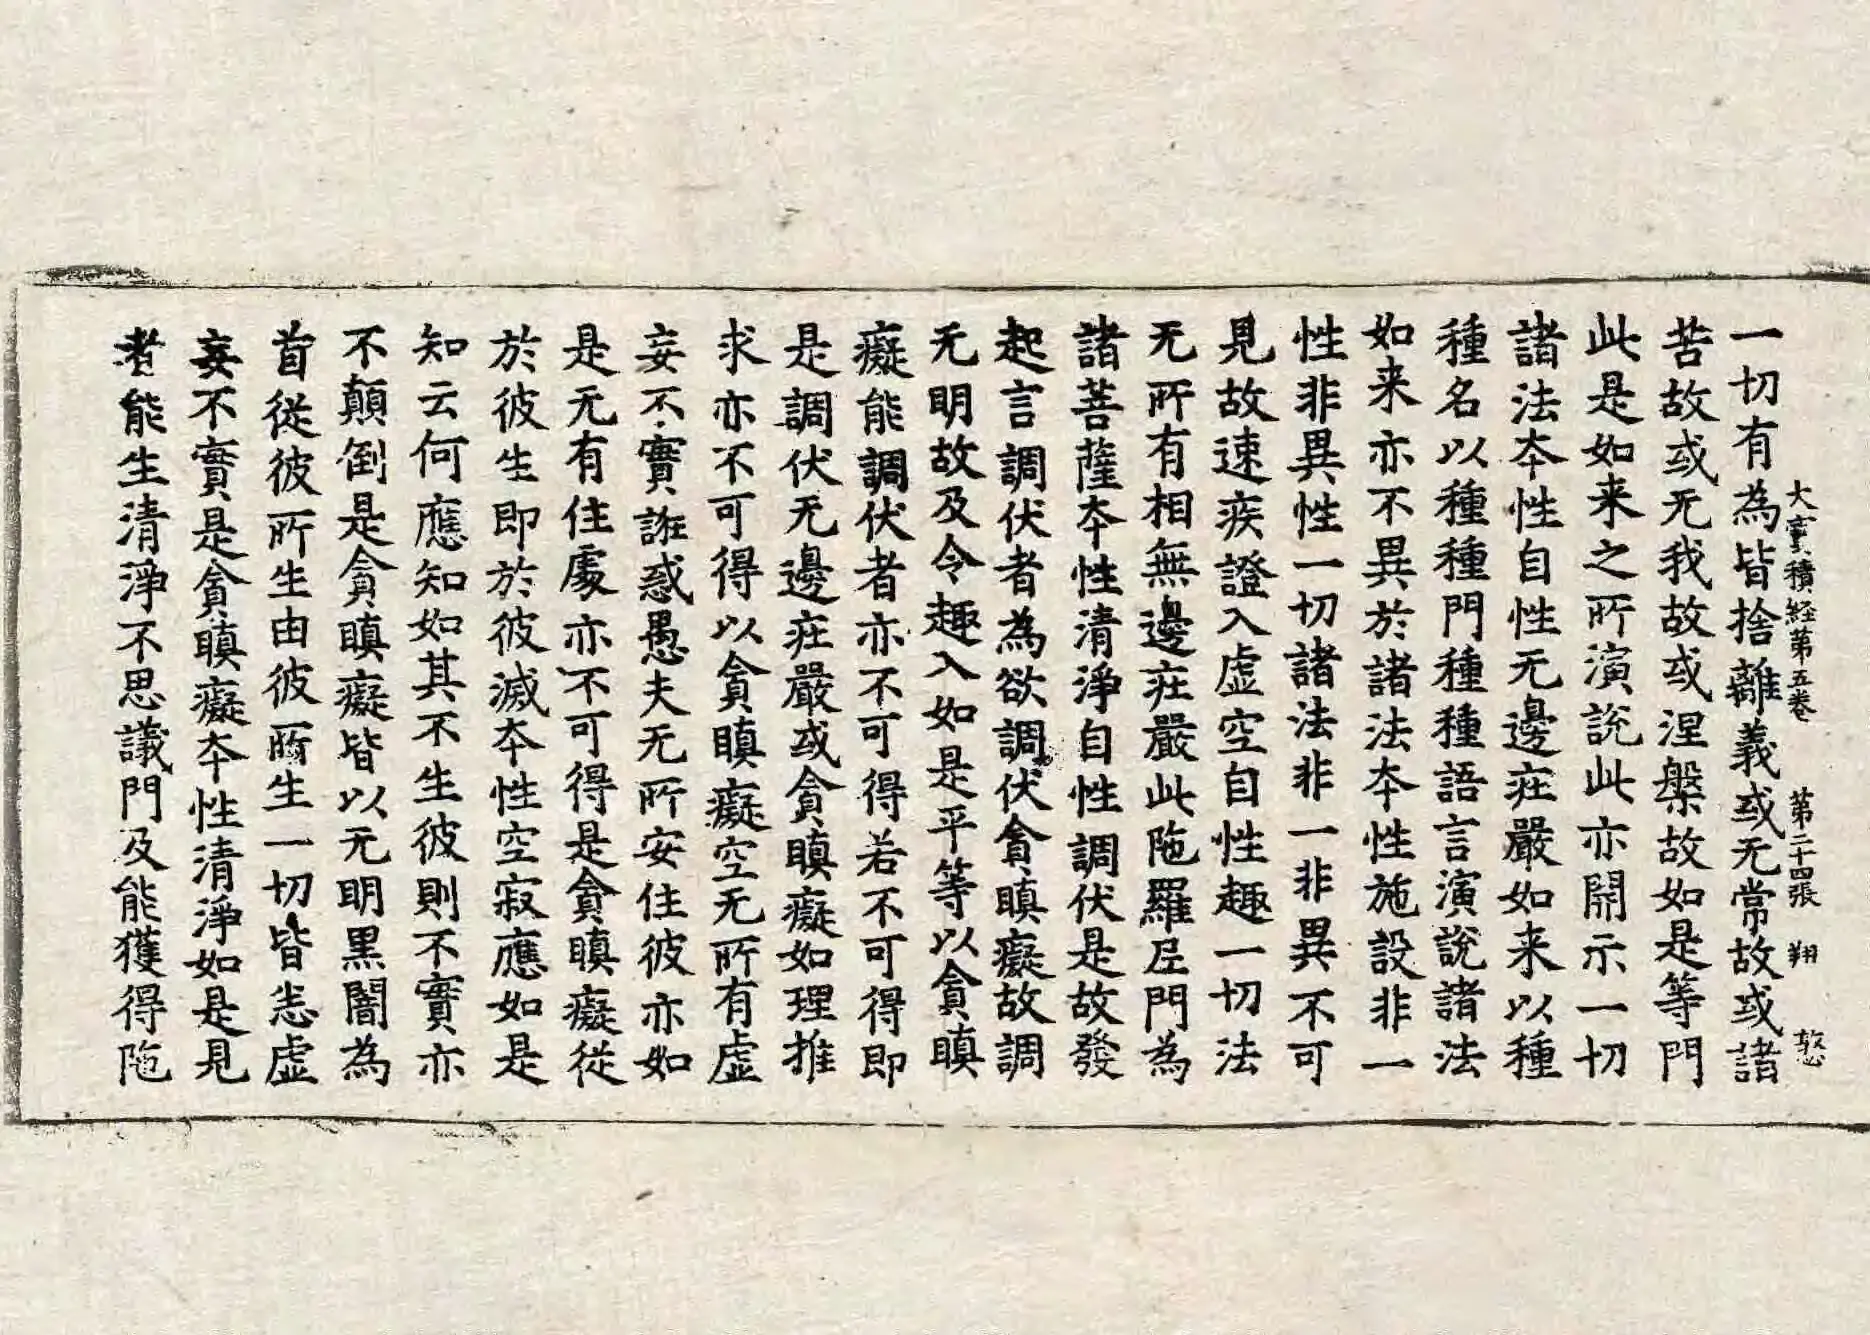 大寳積経苐五卷 苐二十四張 翔 慜
一切有為皆捨離義或无常故或諸
苦故或无我故或涅槃故如是等門
此是如来之所演說此亦開示一切
諸法夲性自性无邊莊嚴如来以種
種名以種種門種種語言演說諸法
如来亦不異於諸法夲性施設非一
性非異性一切諸法非一非異不可
見故速疾證入虛空自性趣一切法
无所有相無邊莊嚴此陁羅尼門為
諸菩薩夲性清淨自性調伏是故發
起言調伏者為欲調伏貪瞋癡故調
无明故及令趣入如是平等以貪瞋
癡能調伏者亦不可得若不可得即
是調伏无邊莊嚴或貪瞋癡如理推
求亦不可得以貪瞋癡空无所有虛
妄不實誑惑愚夫无所安住彼亦如
是无有住處亦不可得是貪瞋癡從
於彼生即於彼滅夲性空寂應如是
知云何應知如其不生彼則不實亦
不顛倒是貪瞋癡皆以无明黒闇為
首從彼所生由彼所生一切皆恙虛
妄不實是貪瞋癡夲性清淨如是見
者能生清淨不思議門及能獲得陁